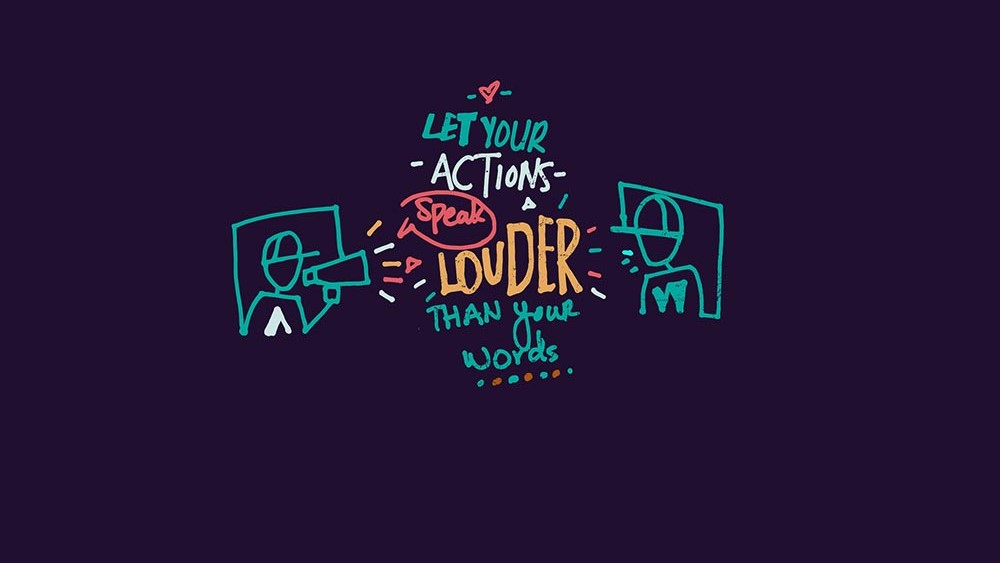 LET YOUR
-ACTIONS-
Speak
LOUDER
THAN your
words
A
W